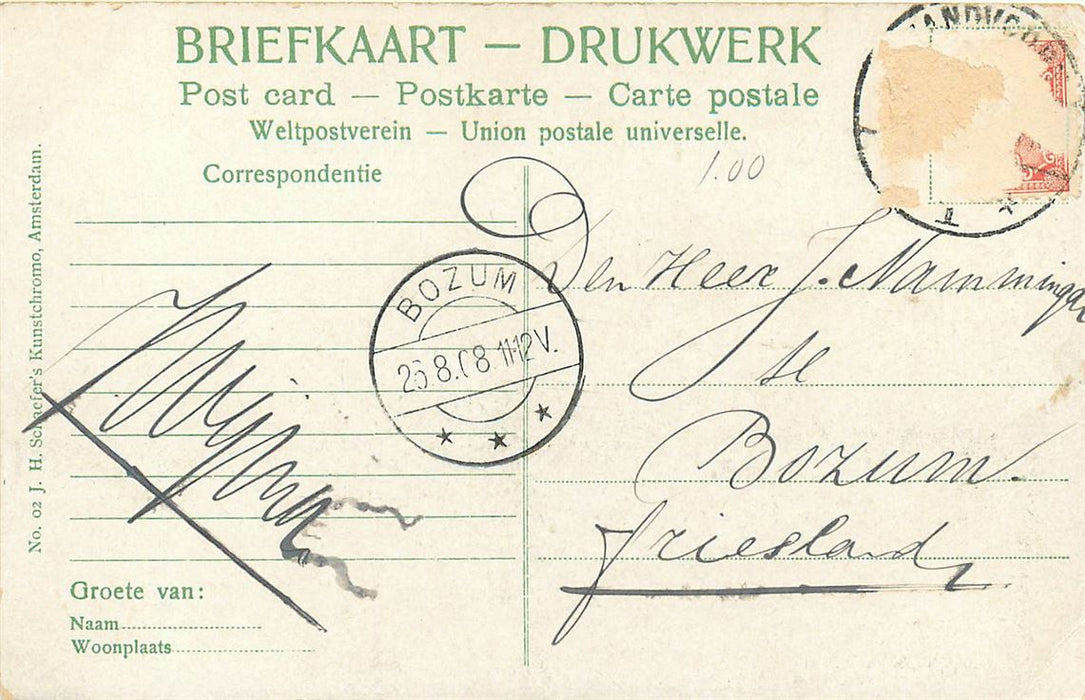 BRIEFKAART — DRUKWERK
Post card — Postkarte — Carte postale
Weltpostverein — Union postale universelle.
Correspondentie
1.00
Den Heer J. Namminga
te
Bozum.
Friesland
BOZUM
25.8.08.11-12V.
Groete van:
Naam
Woonplaats
No. 02 J. H. Schaefer's Kunstchromo, Amsterdam.